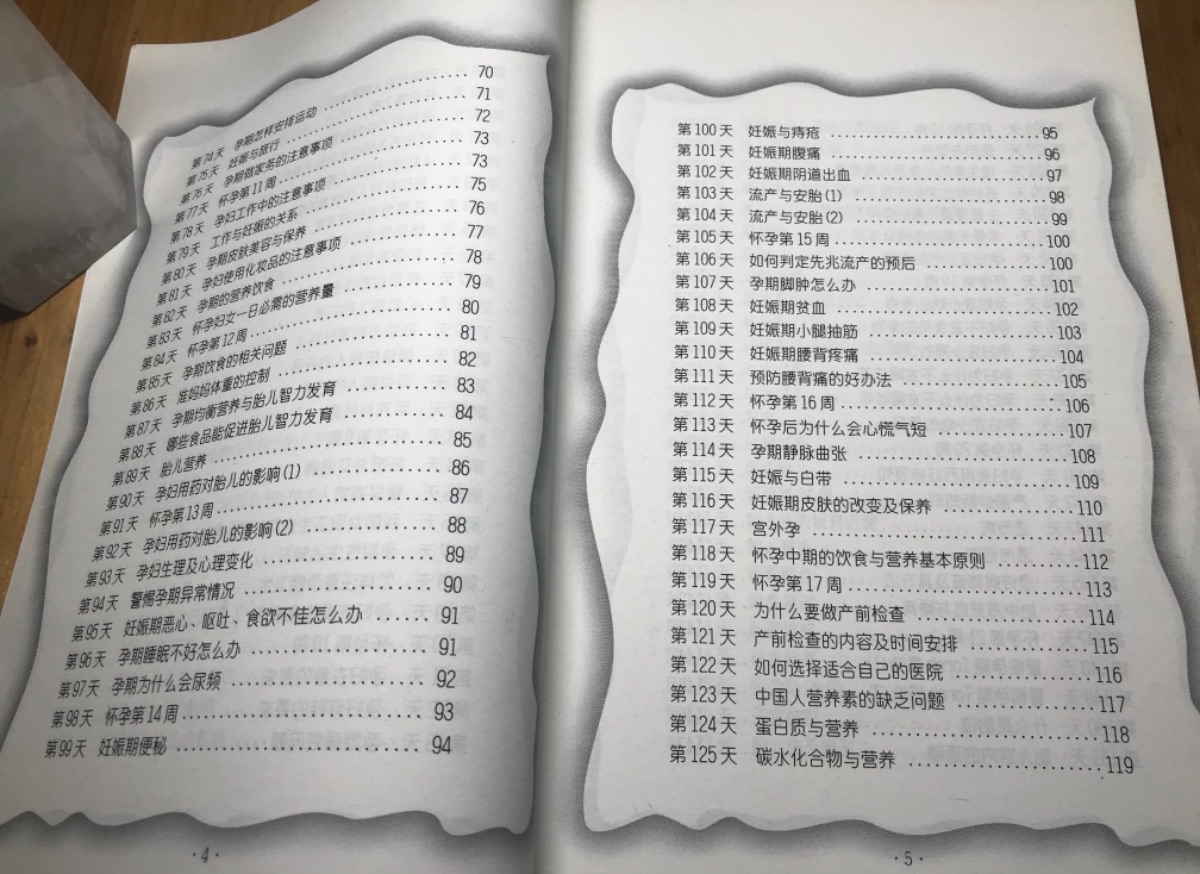 第74天 孕期怎样安排运动 70
第75天 妊娠与旅行 71
第76天 孕期做家务的注意事项 72
第77天 怀孕第11周 73
第78天 孕妇工作中的注意事项 73
第79天 工作与妊娠的关系 75
第80天 孕期皮肤美容与保养 76
第81天 孕妇使用化妆品的注意事项 77
第82天 孕期的营养饮食 78
第83天 怀孕妇女一日必需的营养量 79
第84天 怀孕第12周 80
第85天 孕期饮食的相关问题 81
第86天 准妈妈体重的控制 82
第87天 孕期均衡营养与胎儿智力发育 83
第88天 哪些食品能促进胎儿智力发育 84
第89天 胎儿营养 85
第90天 孕妇用药对胎儿的影响(1) 86
第91天 怀孕第13周 87
第92天 孕妇用药对胎儿的影响(2) 88
第93天 孕妇生理及心理变化 89
第94天 警惕孕期异常情况 90
第95天 妊娠期恶心、呕吐、食欲不佳怎么办 91
第96天 孕期睡眠不好怎么办 91
第97天 孕期为什么会尿频 92
第98天 怀孕第14周 93
第99天 妊娠期便秘 94
·4·
第100天 妊娠与痔疮 95
第101天 妊娠期腹痛 96
第102天 妊娠期阴道出血 97
第103天 流产与安胎(1) 98
第104天 流产与安胎(2) 99
第105天 怀孕第15周 100
第106天 如何判定先兆流产的预后 100
第107天 孕期脚肿怎么办 101
第108天 妊娠期贫血 102
第109天 妊娠期小腿抽筋 103
第110天 妊娠期腰背疼痛 104
第111天 预防腰背痛的好办法 105
第112天 怀孕第16周 106
第113天 怀孕后为什么会心慌气短 107
第114天 孕期静脉曲张 108
第115天 妊娠与白带 109
第116天 妊娠期皮肤的改变及保养 110
第117天 宫外孕 111
第118天 怀孕中期的饮食与营养基本原则 112
第119天 怀孕第17周 113
第120天 为什么要做产前检查 114
第121天 产前检查的内容及时间安排 115
第122天 如何选择适合自己的医院 116
第123天 中国人营养素的缺乏问题 117
第124天 蛋白质与营养 118
第125天 碳水化合物与营养 119
·5·